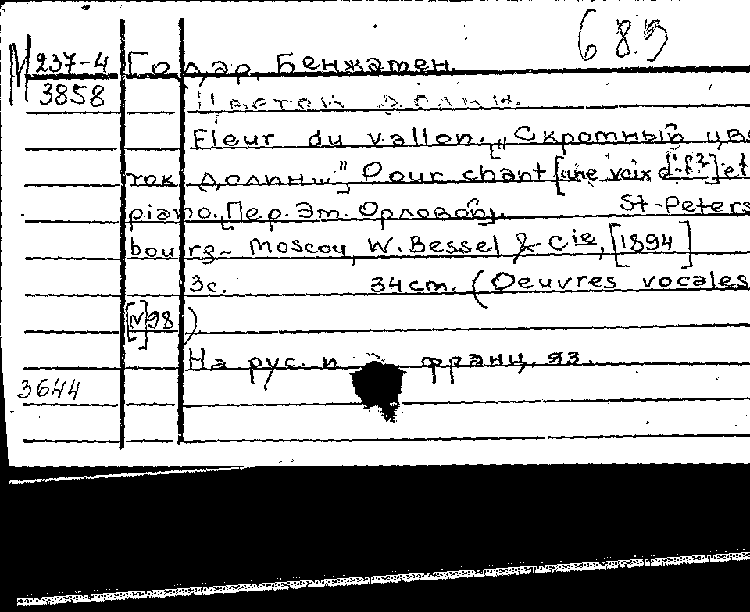 683
М 237-4 Годар, Бенжамен.
3858 Цветок долин.
Fleur du vallon. „Скромный цве
ток долины", Pour chant [une voix d' et
piano. [Пер. Эм. Орловой]. St-Peters
bourg-Moscou, W. Bessel & Cie, [1894]
3с. 34cm. (Oeuvres vocales
[N]98).
На рус. и франц. яз.
3644